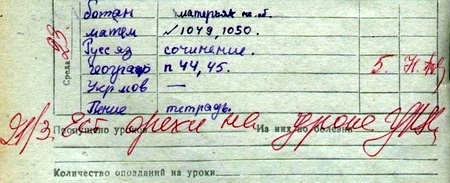 ботан материал на об.
матем √1049, 1050.
Русс яз сочинение.
географ п 44, 45. 5
Укр мов —
Пение тетрадь.
Среда 23
Ест орехи на уроке
Пропущено уроков Из них по болезни
Количество опозданий на уроки